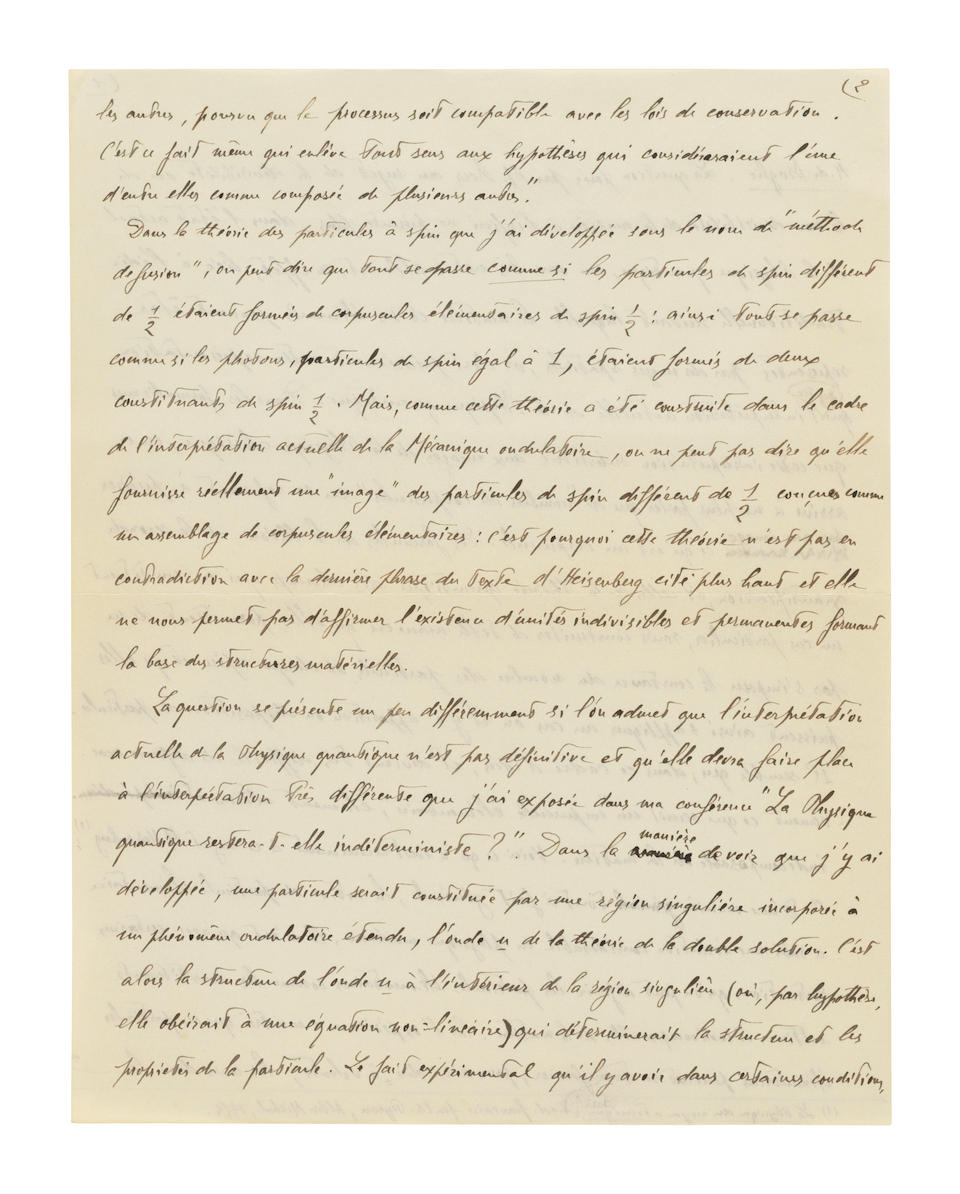 (2
les autres, pourvu que le processus soit compatible avec les lois de conservation.
C'est ce fait même qui enlève tout sens aux hypothèses qui considéreraient l'une
d'entre elles comme composée de plusieurs autres."
Dans la théorie des particules à spin que j'ai développée sous le nom de "méthode
de fusion", on peut dire que tout se passe comme si les particules de spin différent
de 1/2 étaient formées de corpuscules élémentaires de spin 1/2 : ainsi tout se passe
comme si les photons, particules de spin égal à 1, étaient formés de deux
constituants de spin 1/2. Mais, comme cette théorie a été construite dans le cadre
de l'interprétation actuelle de la Mécanique ondulatoire, on ne peut pas dire qu'elle
fournisse réellement une "image" des particules de spin différent de 1/2 conçues comme
un assemblage de corpuscules élémentaires : c'est pourquoi cette théorie n'est pas en
contradiction avec la dernière phrase du texte d'Heisenberg cité plus haut et elle
ne nous permet pas d'affirmer l'existence d'unités indivisibles et permanentes formant
la base des structures matérielles.
La question se présente un peu différemment si l'on admet que l'interprétation
actuelle de la Physique quantique n'est pas définitive et qu'elle devra faire place
à l'interprétation très différente que j'ai exposée dans ma conférence "La Physique
quantique restera-t-elle indéterministe ?". Dans la manière de voir que j'y ai
développée, une particule serait constituée par une région singulière incorporée à
un phénomène ondulatoire étendu, l'onde u de la théorie de la double solution. C'est
alors la structure de l'onde u à l'intérieur de la région singulière (où, par hypothèse,
elle obéirait à une équation non-linéaire) qui déterminerait la structure et les
propriétés de la particule. Le fait expérimental qu'il y avoir dans certaines conditions,